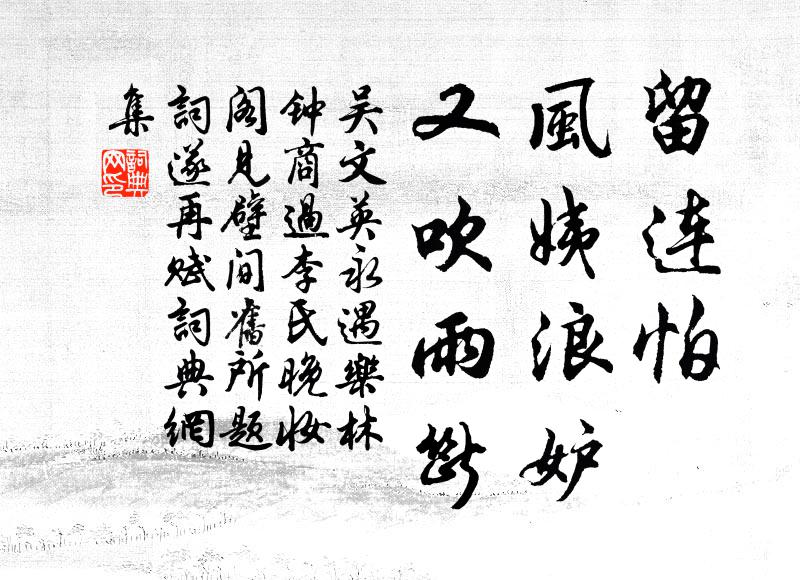 留連怕
風姨浪妒
又吹雨斷
吴文英永遇樂林
钟商過李民晚妆
阁見壁间舊所题
詞遂再赋詞典網
集
詞典網印